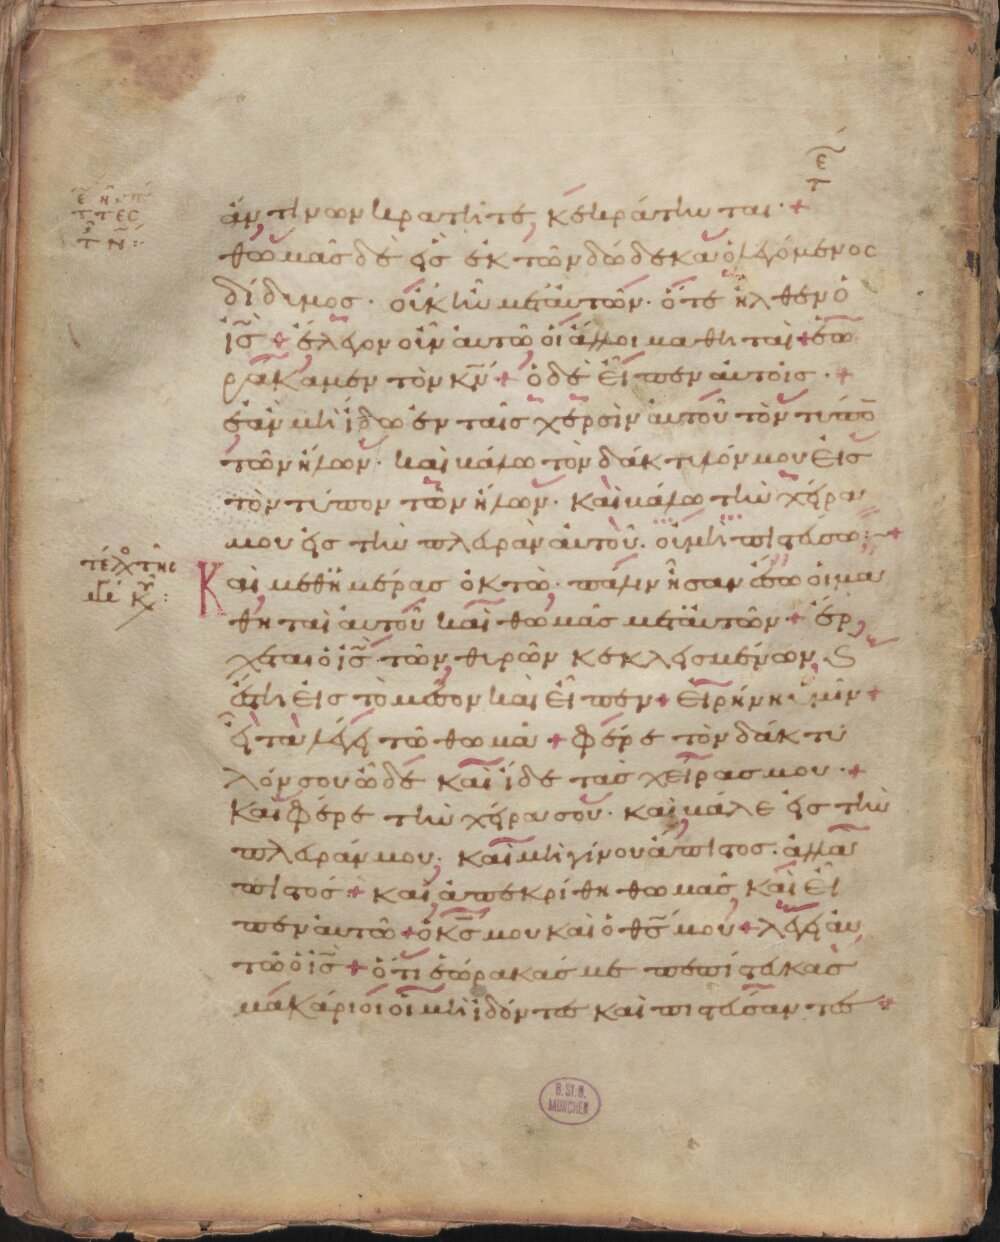 ἄν τινων κρατῆτέ, κὲκράτηνται· +
θωμᾶς δὲ εἷς ἐκ τῶν δώδεκα ὁ λεγόμενος
δίδιμος· οὐκ ἦν μετ' ἀυτῶν· ὅτε ἦλθεν ὁ
ἰς̅ + ἔλεγον οὖν ἀυτῶ, οἱ ἄλλοι μαθηταὶ + ἑω
ράκαμεν τὸν κν̅ + ὁ δὲ εἶπεν ἀυτοῖς· +
ἐὰν μὴ ἴδω ἐν ταῖς χερσὶν ἀυτοῦ τὸν τύπο̅
τῶν ἥλων· καὶ βάλω τὸν δάκτιλόν μου εἰς
τὸν τύπον τῶν ἥλων· καὶ βάλω τὴν χεῖραν
μου εἰς τὴν πλευρὰν ἀυτοῦ· οὐ μὴ πιστεύσω:~+
Καὶ μεθ' ἡμέρας ὀκτὼ· πάλιν ἦσαν ἔσω οἱ μα
θηταὶ ἀυτοῦ καὶ θωμᾶς μετ' ἀυτῶν + ἔρ
χεται ὁ ἰς̅ τῶν θυρῶν κεκλεισμένων, ϛ
ἔστη εἰς τὸ μέσον καὶ εἶπεν + εἰρήνη ὑμῖν +
εἶτα λέγει τῶ θωμᾶ + φέρε τὸν δάκτυ
λόν σου ὧδε καὶ ἴδε τὰς χεῖρας μου· +
καὶ φέρε τὴν χεῖραν σου· καὶ βάλε εἰς τὴν
πλευράν μου· καὶ μὴ γίνου ἄπιστος· ἀλλὰ
πιστός + καὶ ἀπεκρίθη θωμᾶς, καὶ εἶ
πεν ἀυτῶ + ὁ κς̅ μου καὶ ὁ θς̅ μου + λέγει ἀυ
τῶ ὁ ἰς̅ + ὅτι ἑώρακάς με πεπίστευκας
μακάριοι οἱ μὴ ἰδόντες καὶ πιστεύσαντες +
B. ST. B.
MÜNCHEN